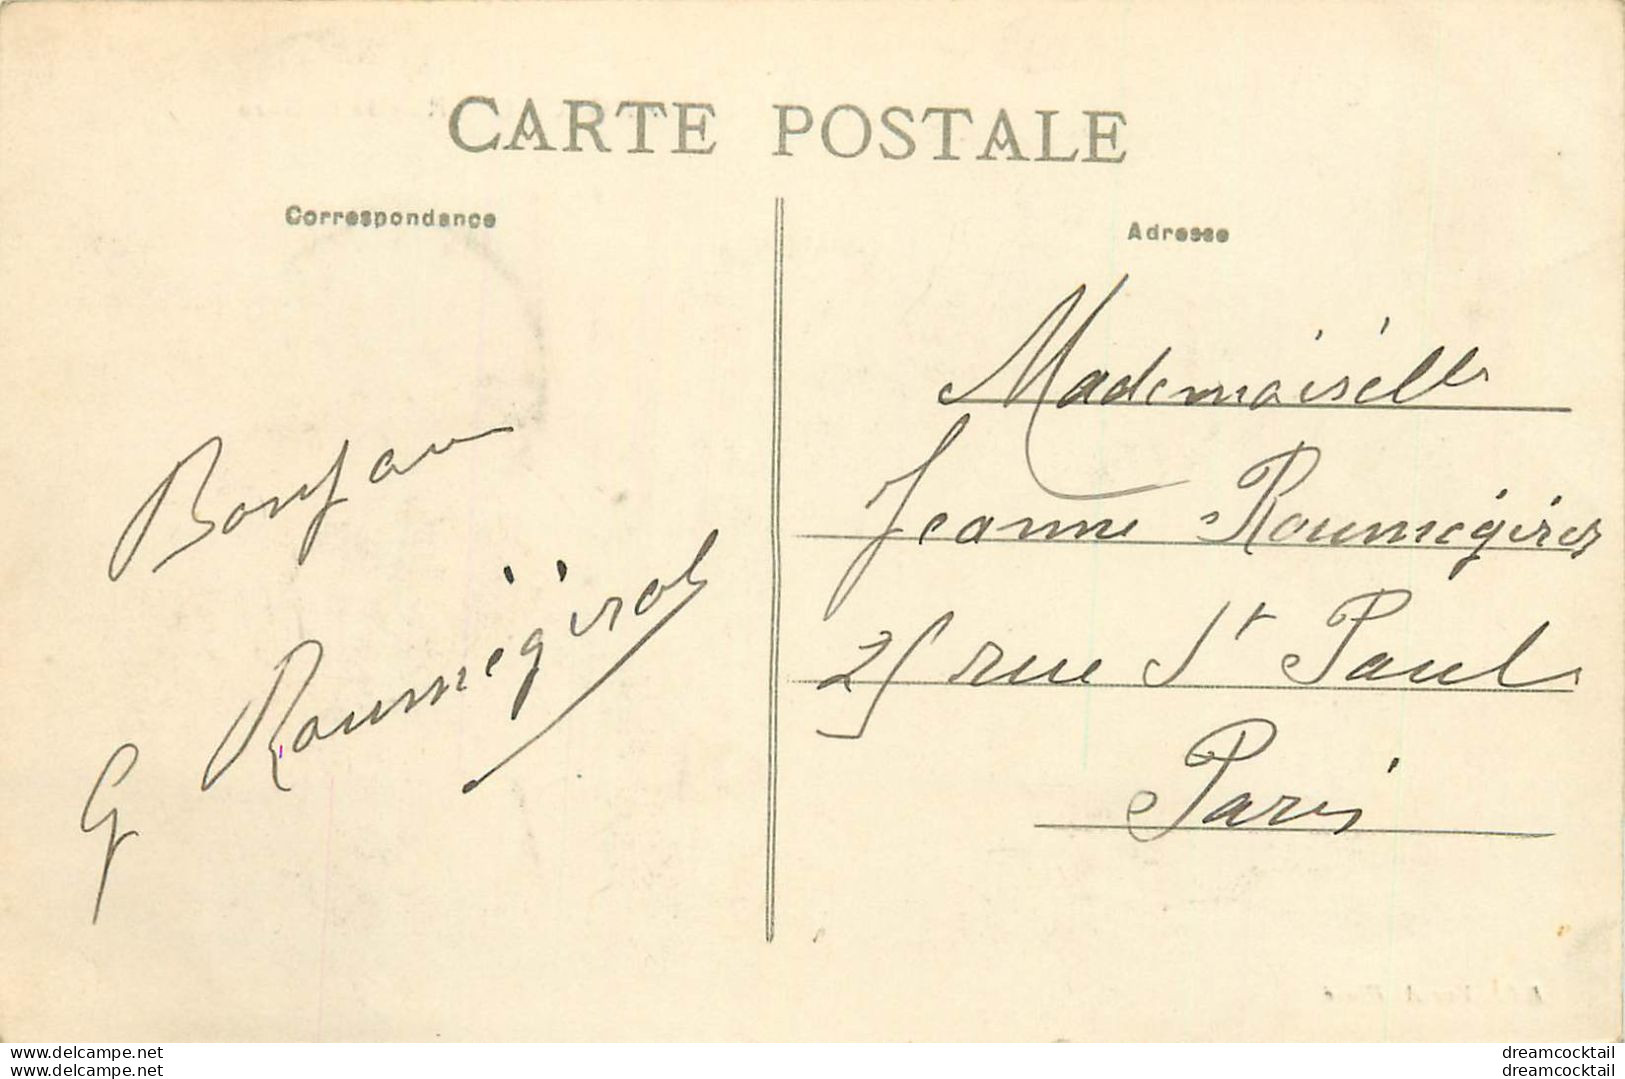 CARTE POSTALE
Correspondance
Adresse
Bonjour
G Roumégières
Mademoiselle
Jeanne Roumégières
25 rue St Paul
Paris
www.delcampe.net
www.delcampe.net
dreamcocktail
dreamcocktail